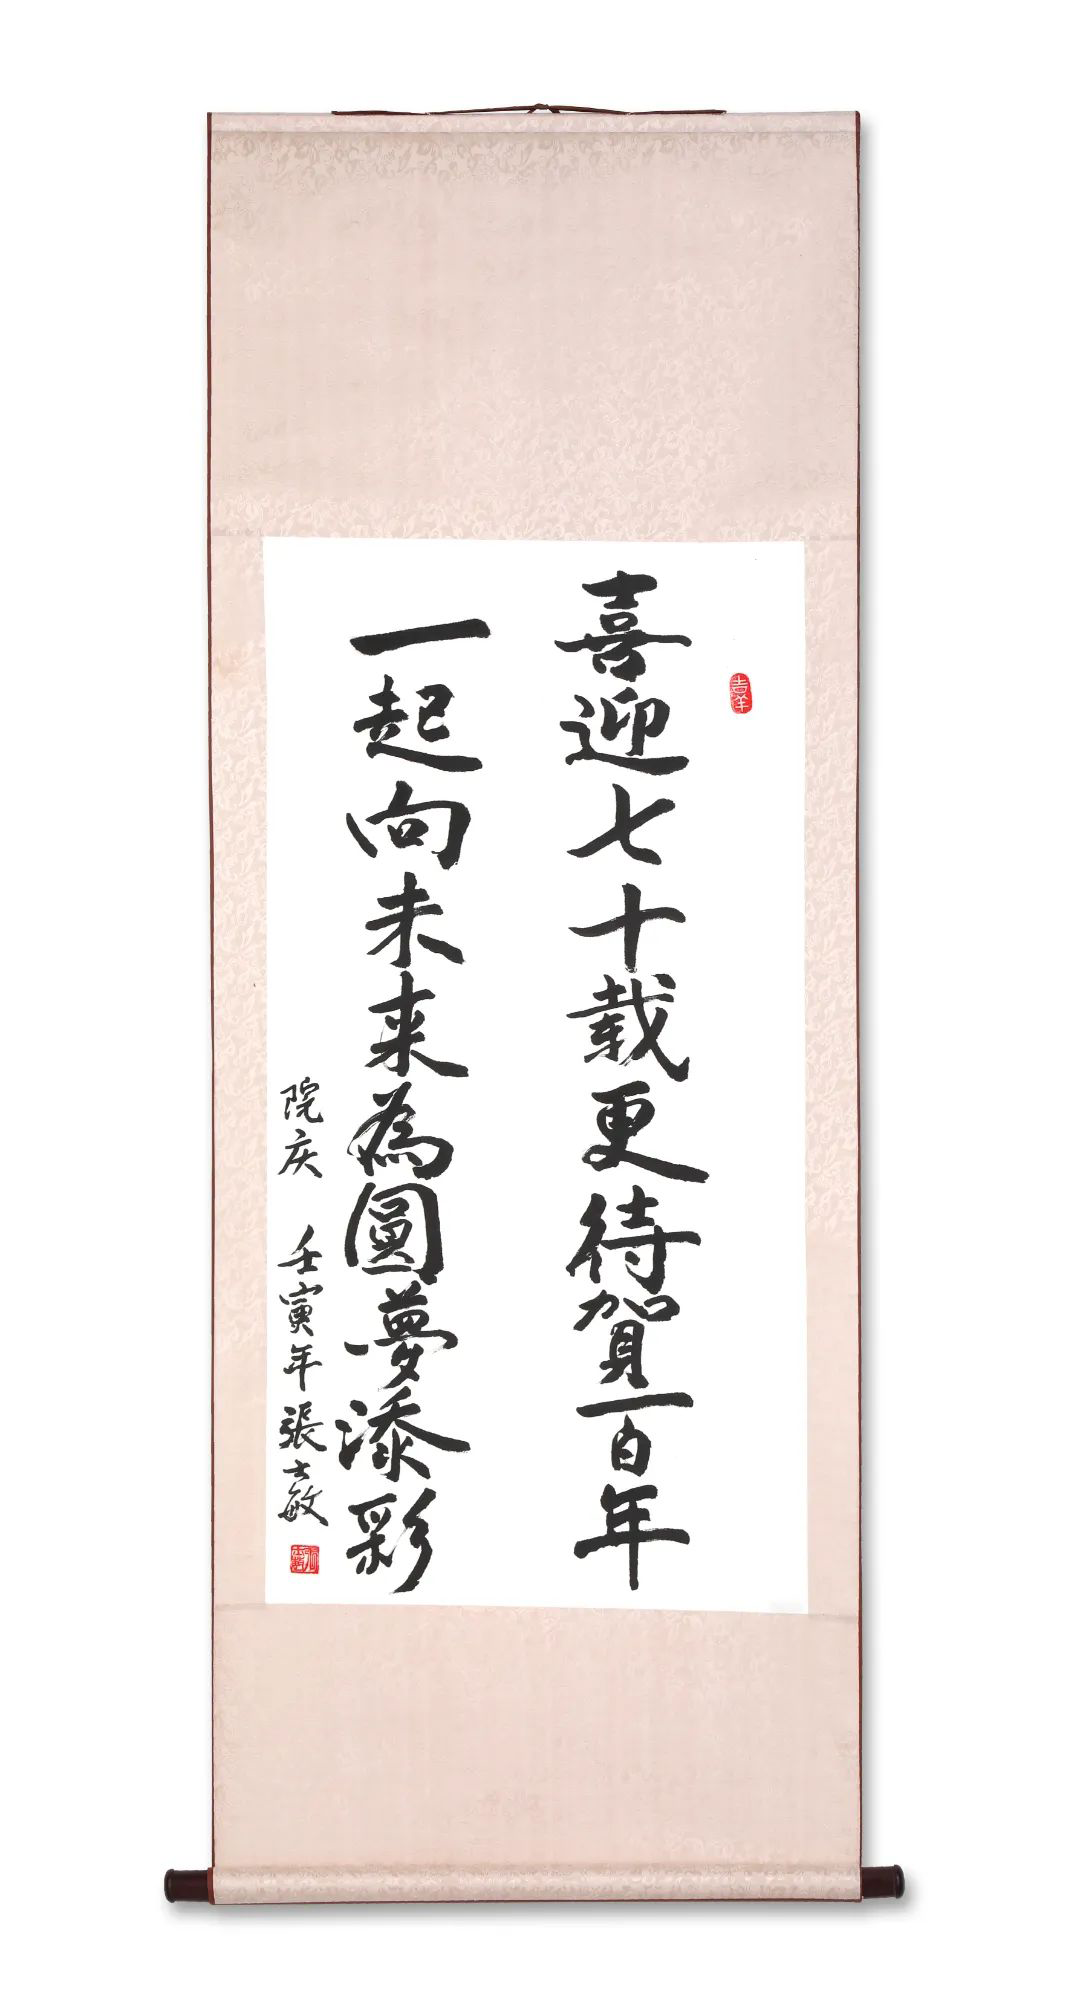 喜迎七十载更待贺百年
一起向未来為圓夢添彩
院庆 壬寅年張士敏
吉羊